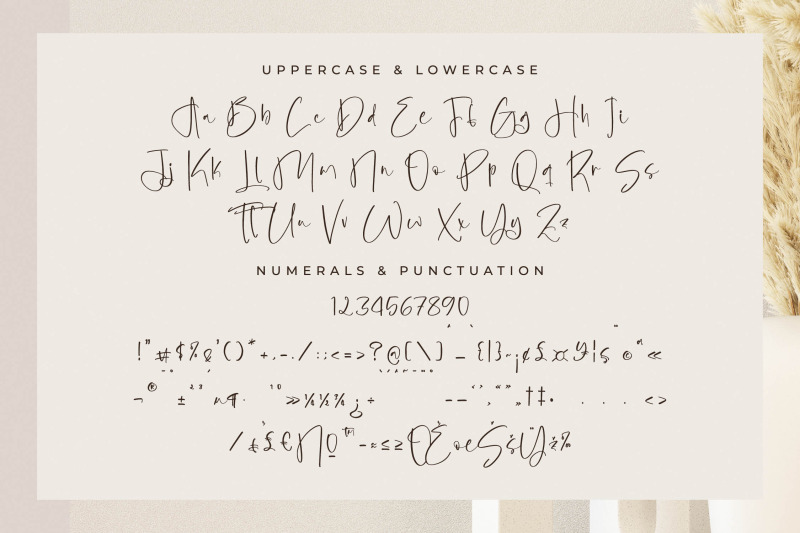 UPPERCASE & LOWERCASE
Aa Bb Cc Dd Ee Ff Gg Hh Ii
Jj Kk Ll Mm Nn Oo Pp Qq Rr Ss
Tt Uu Vv Ww Xx Yy Zz
NUMERALS & PUNCTUATION
1234567890
!"#$%&'()*+,-./:;<=>?@[\]_{|}~¡¢£¤¥¦§©ª«
¬®±²³µ¶·¹º»¼½¾¿÷–—‘’‚“”„†‡•...‹›
⁄₤£€Πº™−≈≤≥ŒœŠšŸž‰